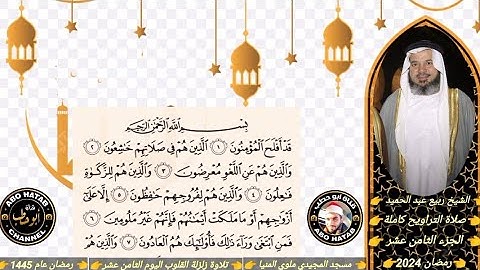 بِسْمِ اللَّهِ الرَّحْمَٰنِ الرَّحِيمِ
قَدْ أَفْلَحَ الْمُؤْمِنُونَ ١ الَّذِينَ هُمْ فِي صَلَاتِهِمْ خَاشِعُونَ ٢
وَالَّذِينَ هُمْ عَنِ اللَّغْوِ مُعْرِضُونَ ٣ وَالَّذِينَ هُمْ لِلزَّكَوٰةِ
فَاعِلُونَ ٤ وَالَّذِينَ هُمْ لِفُرُوجِهِمْ حَافِظُونَ ٥ إِلَّا عَلَىٰ
أَزْوَاجِهِمْ أَوْ مَا مَلَكَتْ أَيْمَانُهُمْ فَإِنَّهُمْ غَيْرُ مَلُومِينَ ٦
فَمَنِ ابْتَغَىٰ وَرَاءَ ذَٰلِكَ فَأُولَٰئِكَ هُمُ الْعَادُونَ ٧ وَالَّذِينَ هُمْ
ABO HATAB
أبو حطب
CHANNEL
قناة أبو حطب
ABO HATAB
الشيخ ربيع عبد الحميد
صلاة التراويح كاملة
الجزء الثامن عشر
رمضان 2024
رمضان عام 1445
تلاوة زلزلة القلوب اليوم الثامن عشر
مسجد المجيدي ملوي المنيا